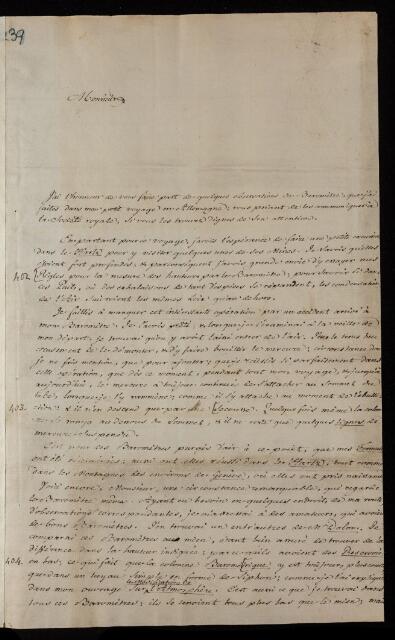 239
Monsieur
J'ai l'honneur de vous faire part de quelques observations du Baromètre, que j'ai
faites dans mon petit voyage en Allemagne; vous priant de les communiquer à
la Société royale, si vous les trouvez dignes de son attention.
En partant pour ce voyage, j'avois l'espérance de faire une petite
dans le Hartz pour y visiter quelques unes de ses Mines. Je savois qu'elles
étoient fort profondes, & par conséquent j'avois grande envie d'y essayer mes
402. Règles pour la mesure des hauteurs par le Baromètre; pour savoir si dans
ces Puits, où des exhalaisons de tant d'espèces se répandent, les condensations
de l'Air suivroient les mêmes loix qu'au dehors.
Je faillis à manquer cet intéressante opération par un accident arrivé à
mon Baromètre. Je l'avois prêté, & lorsque je l'examinai à la veille de
mon départ, je trouvai qu'on y avoit laissé entrer de l'air. Je fus
de le démonter, & d'y faire bouillir le mercure;
je ne fais mention, que pour ajouter, que je réussis si parfaitement dans
cette opération, que dès ce moment, pendant tout mon voyage, & jusques
aujourd'hui, le mercure a toujours continué de s'attacher au sommet du
tube, lorsque je l'y ramène; comme il s'y attache au moment de l'ébulli-
403. tion; & il n'en descend que par une Secousse. Quelques fois même la colonne
se au dessous du Sommet, & il ne reste que quelques lignes de
mercure suspendu.
C'est pour ces Baromètres purgés d'air à ce point, que mes Formules
ont été ; aussi ont elles réussi dans le Hartz, tout comme
dans les Montagnes des environs de Genève, où elles ont pris naissance.
Voici encore, Monsieur, une circonstance remarquable, qui regarde
le Baromètre même. Ayant eu besoin en quelques endroits de ma route
d'observations correspondantes, je m'adressai à des amateurs, qui avoient
de bons Baromètres. J'en trouvai un entr'autres de Mr. Dalon. Je
comparai ces Baromètres au mien, étant bien assuré de trouver de la
différence dans la hauteur indiquée; parce qu'ils avoient des Réservoirs
404. en bas, ce qui fait que la colonne Barométrique y est toujours plus courte
que dans un tuyau simple en forme de Siphon; comme je l'ai expliqué
dans mon ouvrage sur l'Atmosphère. C'est aussi ce que je trouvai dans
tous ces Baromètres; ils se tenoient tous plus bas que le mien; mais